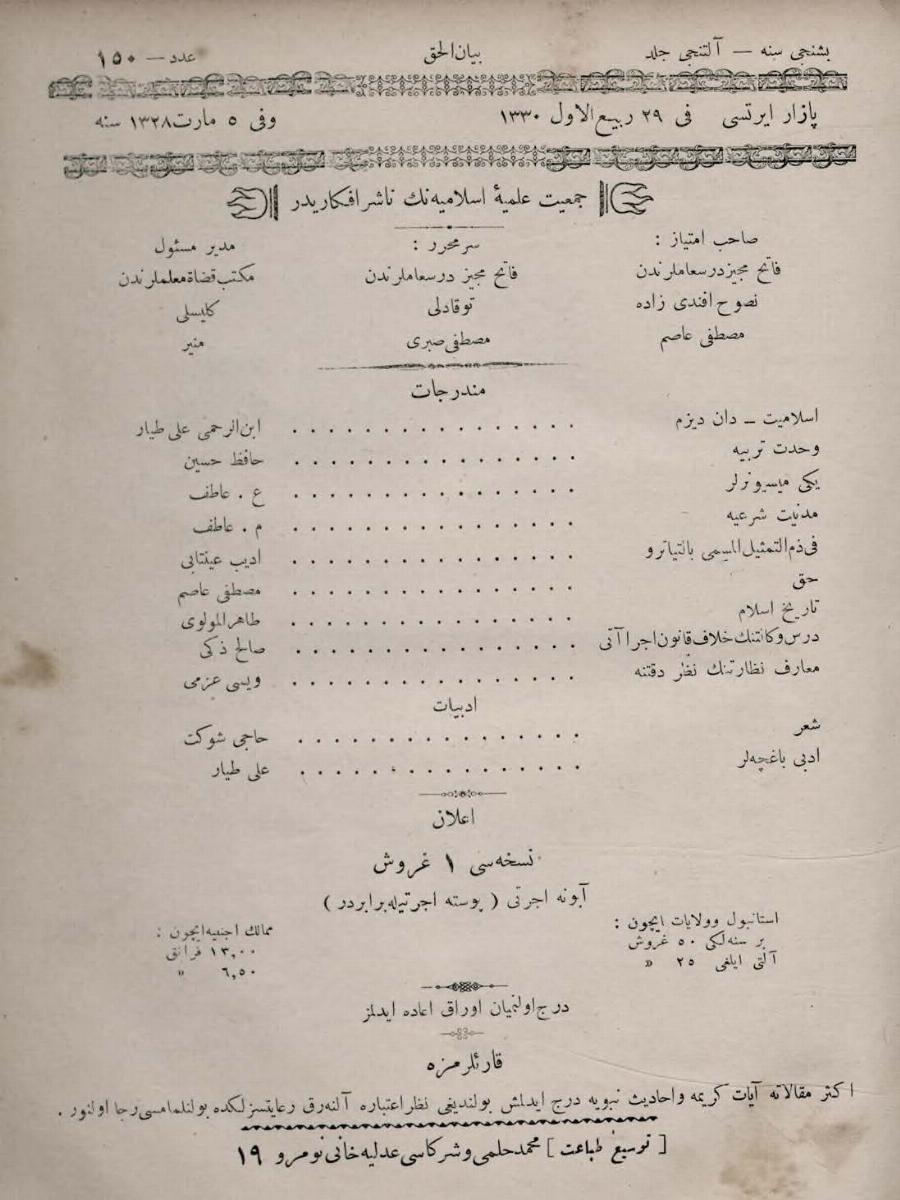 بشنجی سنه — آلتنجی جلد
بیان الحق
عدد — ١٥٠
پازار ایرتسی فی ٢٩ ربیع الاول ١٣٣٠
وفی ٥ مارت ١٣٢٨ سنه
جمعیت علمیهٔ اسلامیه نك ناشر افكاریدر
صاحب امتیاز :
فاتح مجیز درسعاملرندن
نصوح افندی زاده
مصطفی عاصم
سرمحرر :
فاتح مجیز درسعاملرندن
توقادلی
مصطفی صبری
مدیر مسئول
مكتب قضاة معلملرندن
كلیسلی
منیر
مندرجات
اسلامیت — دان دیزم . . . . . . . . . . . . . . . . ابن الرحمی علی طیار
وحدت تربیه . . . . . . . . . . . . . . . . حافظ حسین
یكی میسیونرلر . . . . . . . . . . . . . . . . ع . عاطف
مدنیت شرعیه . . . . . . . . . . . . . . . . م . عاطف
فی ذم التمثیل المسمی بالتیاترو . . . . . . . . . . . . . . . . ادیب عینتابی
حق . . . . . . . . . . . . . . . . مصطفی عاصم
تاریخ اسلام . . . . . . . . . . . . . . . . طاهر المولوی
درس وكالتنك خلاف قانون اجراآتی . . . . . . . . . . . . . . . . صالح ذكی
معارف نظارتنك نظر دقتنه . . . . . . . . . . . . . . . . ویسی عزمی
ادبیات
شعر . . . . . . . . . . . . . . . . حاجی شوكت
ادبی باغچه لر . . . . . . . . . . . . . . . . علی طیار
اعلان
نسخه سی ١ غروش
آبونه اجرتی ( پوسته اجرتیله برابردر )
استانبول وولایات ایچون :
بر سنه لكی ٥٠ غروش
آلتی ایلغی ٢٥ »
ممالك اجنبیه ایچون :
١٣,٠٠ فرانق
٦,٥٠ »
درج اولنمیان اوراق اعاده ایدلمز
قارئلرمزه
اكثر مقالاته آیات كریمه و احادیث نبویه درج ایدلمش بولندیغی نظر اعتباره آلنه رق رعایتسزلكده بولنلمامسی رجا اولنور .
[ توسیع طباعت ] محمد حلمی و شركاسی عدلیه خانی نومرو ١٩